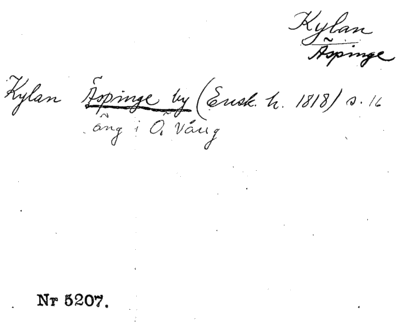 Kylan
Äspinge
Kylan Äspinge by (Ensk. h. 1818) s. 16
äng i Ö. Vång
Nr 5207.